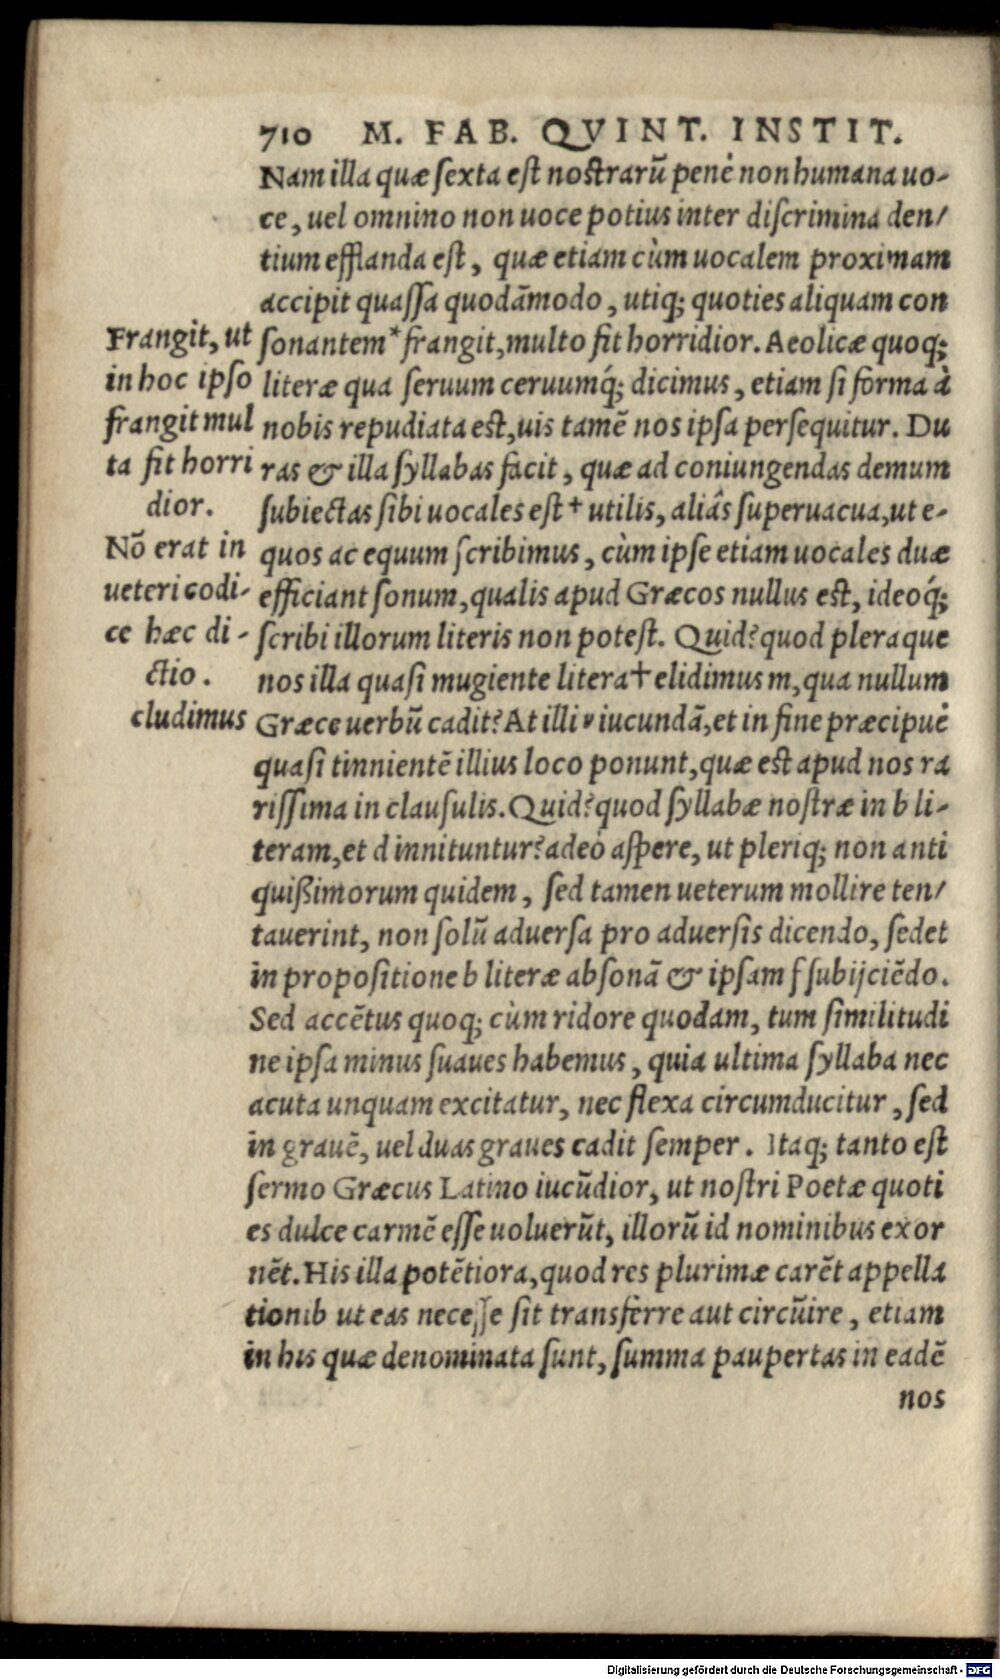 710 M. FAB. QVINT. INSTIT.
Nam illa quæ sexta est nostrarũ penè non humana uo-
ce, uel omnino non uoce potius inter discrimina den/
tium efflanda est, quæ etiam cùm uocalem proximam
accipit quassa quodãmodo, utiq; quoties aliquam con
sonantem* frangit, multo fit horridior. Aeolicæ quoq;
literæ qua seruum ceruumq́; dicimus, etiam si forma à
nobis repudiata est, uis tamẽ nos ipsa persequitur. Du
ras & illa syllabas facit, quæ ad coniungendas demum
subiectas sibi uocales est† utilis, aliâs superuacua, ut e-
quos ac equum scribimus, cùm ipse etiam uocales duæ
efficiant sonum, qualis apud Græcos nullus est, ideoq́;
scribi illorum literis non potest. Quid? quod pleraque
nos illa quasi mugiente litera† elidimus m, qua nullum
Græce uerbũ cadit? At illi ν iucundã, et in fine præcipuè
quasi tinnientẽ illius loco ponunt, quæ est apud nos ra
rissima in clausulis. Quid? quod syllabæ nostræ in b li-
teram, et d innituntur? adeò aspere, ut pleriq; non anti
quißimorum quidem, sed tamen ueterum mollire ten/
tauerint, non solũ aduersa pro aduersis dicendo, sed et
in propositione b literæ absonã & ipsam s subijciẽdo.
Sed accẽtus quoq; cùm ridore quodam, tum similitudi
ne ipsa minus suaues habemus, quia ultima syllaba nec
acuta unquam excitatur, nec flexa circumducitur, sed
in grauẽ, uel duas graues cadit semper. Itaq; tanto est
sermo Græcus Latino iucũdior, ut nostri Poetæ quoti
es dulce carmẽ esse uoluerũt, illorũ id nominibus exor
nẽt. His illa potẽtiora, quod res plurimæ carẽt appella
tionib ut eas necesse sit transferre aut circũire, etiam
in his quæ denominata sunt, summa paupertas in eadẽ
nos
Frangit, ut
in hoc ipso
frangit mul
ta fit horri
dior.
Nõ erat in
ueteri codi-
ce hæc di-
ctio.
cludimus
Digitalisierung gefördert durch die Deutsche Forschungsgemeinschaft - DFG